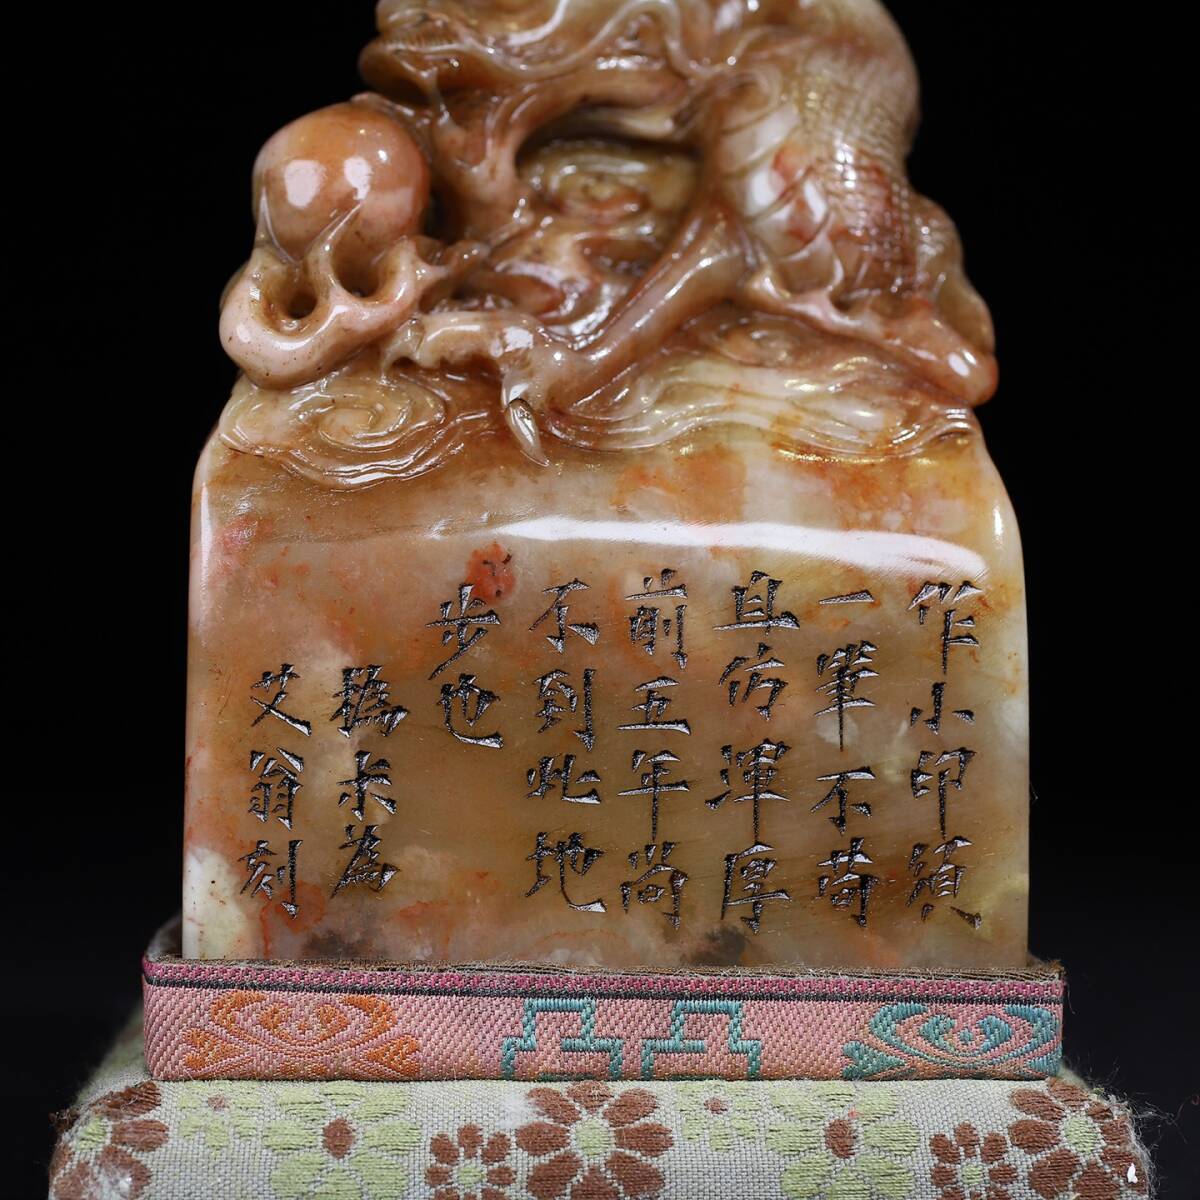 作小印須
一筆不苟
且仿渾厚
前五年尚
不到此地
步也
為
艾翁刻